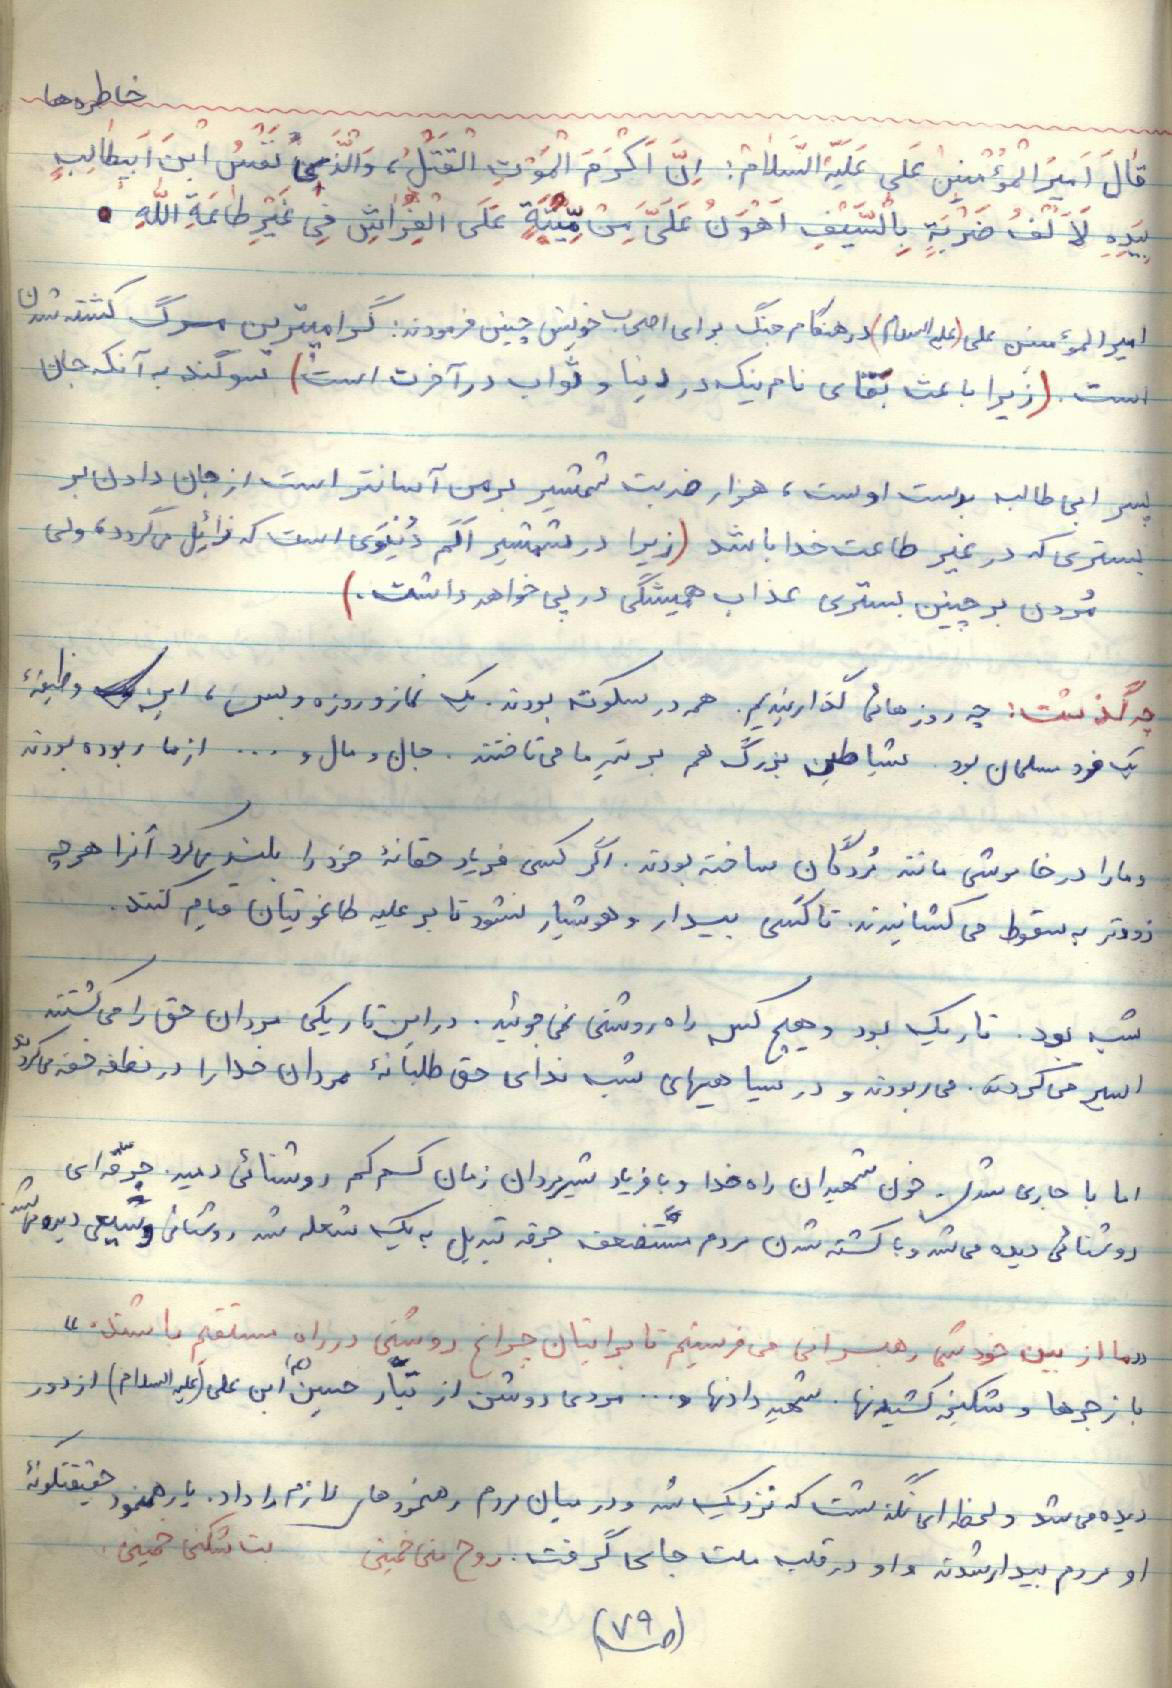 خاطره‌ها
قالَ اَمیرَالْمُؤْمِنینَ عَلی عَلَیْهِ السَّلامْ: اِنَّ اَکْرَمَ الْمَوْتِ الْقَتْلُ، وَالَّذی نَفْسُ ابْنَ اَبیطالِبٍ
بِیَدِهِ لَاَلْفُ ضَرْبَةٍ بِالسَّیْفِ اَهْوَنُ عَلَیَّ مِنْ مِیْتَةٍ عَلَی الْفِراشِ فِی غَیْرِ طاعَةِ اللهِ .
امیرالمؤمنین علی (علیه‌السلام) در هنگام جنگ برای اصحاب خویش چنین فرمودند: گرامیترین مرگ کشته شدن
است. (زیرا باعث بقای نام نیک در دنیا و ثواب در آخرت است) سوگند به آنکه جان
پسر ابی طالب بدست اوست، هزار ضربت شمشیر بر من آسانتر است از جان دادن بر
بستری که در غیر طاعت خدا باشد (زیرا در شمشیر اَلَمِ دُنْیَوی است که زائیل می‌گردد، ولی
مُردن بر چنین بستری عذاب همیشگی در پی خواهد داشت.)
چه گذشت: چه روزهائی گذارنیدیم. همه در سکوت بودند. یک نماز و روزه و بس، این وظیفهٔ
یک فرد مسلمان بود. شیاطین بزرگ هم بر سَرِ ما می‌تاختند. جان و مال و ... از ما ربوده بودند
و ما را در خاموشی مانند مُردگان ساخته بودند. اگر کسی فریاد حقانهٔ خود را بلند میکرد آنرا هر چه
زودتر به سقوط می‌کشانیدند. تا کسی بیدار و هوشیار نشود تا بر علیه طاغوتیان قیام کنند.
شب بود. تاریک بود و هیچ کس راه روشنی نمی‌جوئید. در این تاریکی مردان حق را می‌کشتند
اسیر می‌کردند. می‌ربودند و در سیاهیهای شب ندای حق طلبانهٔ مردان خدا را در نطفه خفه میکردند
اما با جاری شدن خون شهیدان راه خدا و با فریاد شیرمردان زمان کم کم روشنائی دمید. جرقه‌ای
روشنائی دیده می‌شد و با کشته شدن مردم مستضعف جرقه تبدیل به یک شعله شد روشنائی وسیعی دیده میشد
«ما از بین خودتان رهبرانی می‌فرستیم تا برایتان چراغ روشنی در راه مستقیم باشند.»
با زجرها و شکنجه کشیدنها. شهید دادنها و... مردی روشن از تبار حسین ابن علی (علیه‌السلام) از دور
دیده می‌شد و لحظه‌ای نگذشت که نزدیک شد و در میان مردم رهنمودهای لازم را داد. با رهنمود حقیقتگونهٔ
او مردم بیدار شدند و او در قلب ملت جای گرفت. روح منی خمینی بت شکنی خمینی.
(صـ ۷۹)